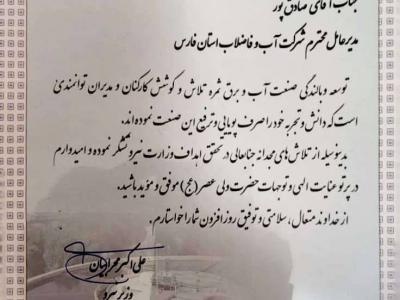 جناب آقای صادق پور
مدیرعامل محترم شرکت آب و فاضلاب استان فارس
توسعه و بالندگی صنعت آب و برق ثمره تلاش و کوشش کارکنان و مدیران توانمندی
است که دانش و تجربه خود را صرف پویایی و ترفیع این صنعت نموده‌اند.
بدینوسیله از تلاش‌های مجدانه جنابعالی در تحقق اهداف وزارت نیرو تشکر نموده و امیدوارم
در پرتو عنایات الهی و توجهات حضرت ولی عصر (عج) موفق و مؤید باشید.
از خداوند متعال، سلامتی و توفیق روزافزون شما را خواستارم.
علی اکبر محرابیان
وزیر نیرو